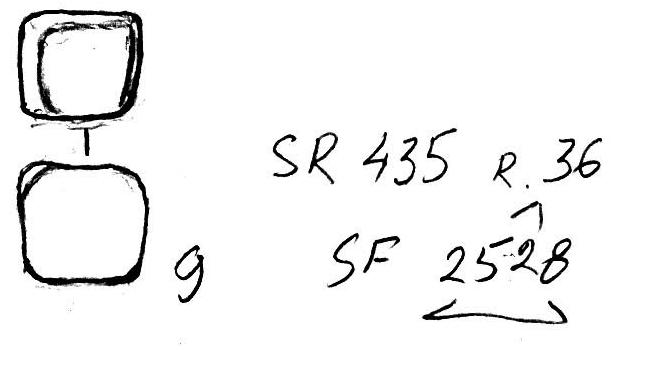 SR 435 R. 36
g SF 2528